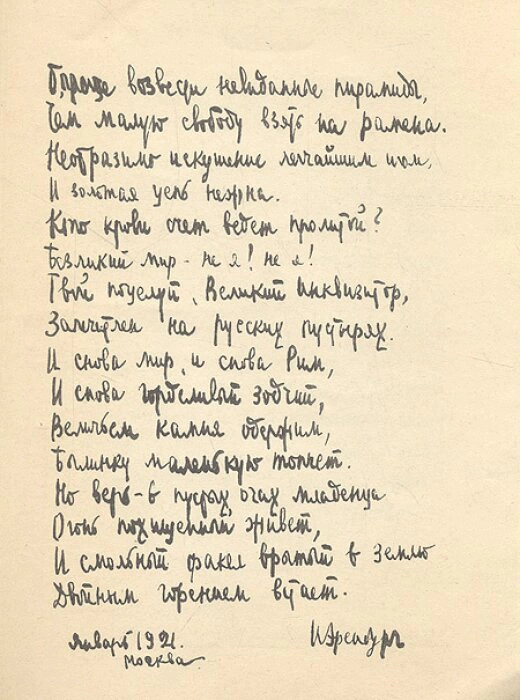 Проще возведи невиданные пирамиды,
Чем малую свободу взять на рамена.
Необразимо искушение легчайшим игом,
И золотая цепь нежна.
Кто крови счет ведет пролитой?
Безликий мир - не я! не я!
Твой поцелуй, Великий Инквизитор,
Замечтлен на русских пустырях.
И снова мир, и снова Рим,
И снова горделивый зодчий,
Величьем камня одержим,
Былинку маленькую топчет.
Но верь - в пустых очах младенца
Огонь похищенный живет,
И смольный факел вратый в землю
Двойным горением встает.
январь 1921.
Москва
И Эренбург